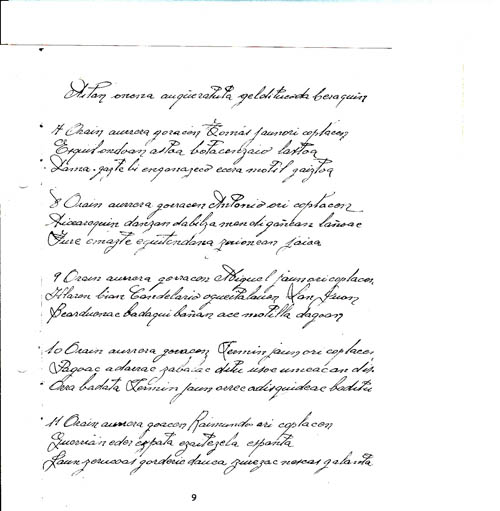 Astan onena auqueratuta geldituco da beraquin
7 Orain aurrera goracon Tomás jaunori coplacon
Esquil ondoan astoa botacorzaio lastoa
Dama gazte bi enganazeco ecera motil gaiztoa
8 Orain aurrera goracon Antonio ori coplacon
Aiccaroquin danzan dabilza mendi gañean lañoac
Zure emazte equitendana zurionean jaioa
9 Orain aurrera goracon Miguel jaun ori coplacon
Ilaren bian Candelario ogueitalauen San Juan
Bearduonac badaqui bañan ace motilla dagoan
10 Orain aurrera goracon Fermin jaun ori coplacon
Pagoac adarrac zabalac ditu usoe umeac an ditu
Orra badata Fermin jaun orrec adisquideac baditu
11 Orain aurrera goacon Raimundo ori coplacon
eder ezpata ezaitezela espanta
Jaun zerucoas gorderic dauca zuretzac nescas galanta
9